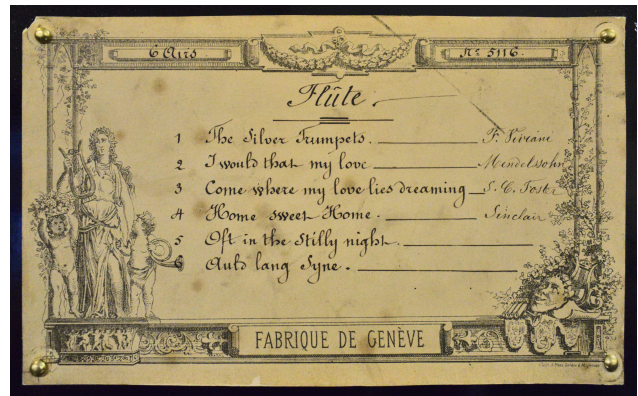 6 Airs
No 5116.
Flûte.
1 The Silver Trumpets. F. Viviani
2 I would that my love Mendelssohn
3 Come where my love lies dreaming S. C. Foster
4 Home sweet Home. Sinclair
5 Oft in the stilly night.
6 Auld lang Syne.
FABRIQUE DE GENÈVE